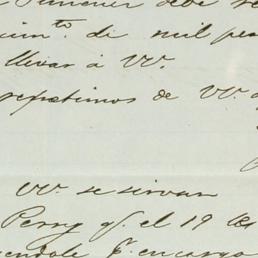 debe
cim^to. de mil pe
llevar á VV.
repetimos de VV.
VV. se sirvan
Perry q. el 19 de
encargo